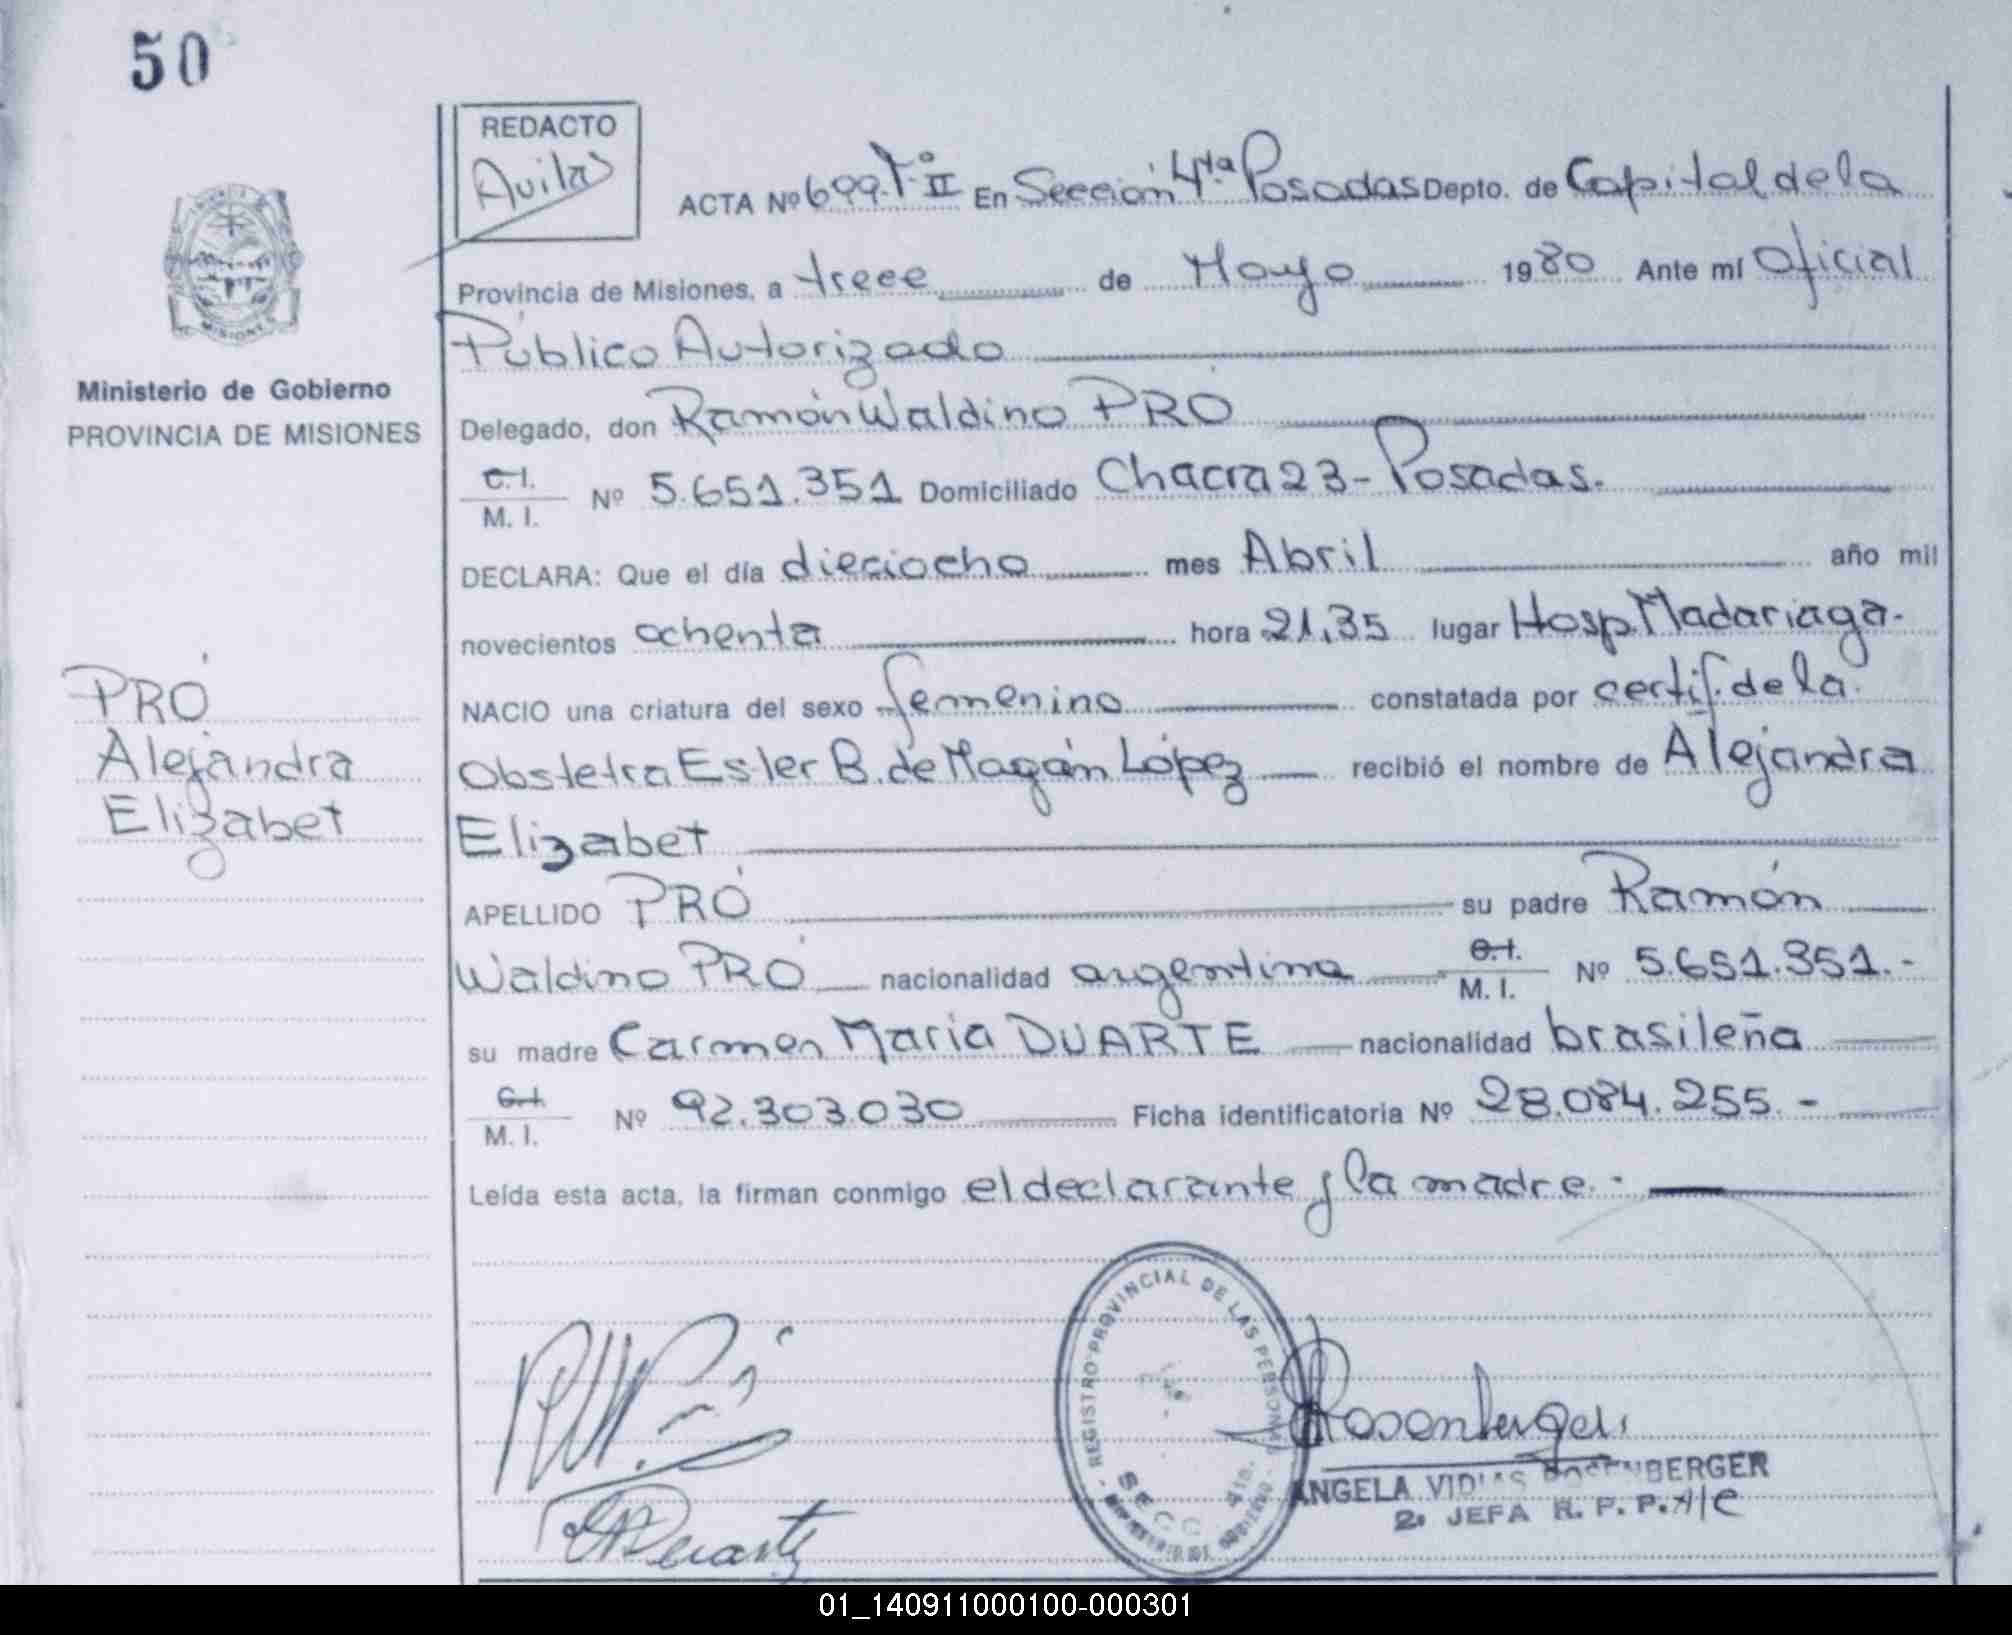 50
REDACTO
Avilas
ACTA Nº 699. Tº II En Sección 4ta Posadas Depto. de Capital de la
Provincia de Misiones, a trece de Mayo 1980 Ante mí Oficial
Público Autorizado
Ministerio de Gobierno
PROVINCIA DE MISIONES
Delegado, don Ramón Waldino PRÓ
C. I.
M. I. Nº 5.651.351 Domiciliado Chacra 23 - Posadas.
DECLARA: Que el día dieciocho mes Abril año mil
novecientos ochenta hora 21,35 lugar Hosp. Madariaga.
PRÓ
Alejandra
Elizabet
NACIO una criatura del sexo femenino constatada por certif. de la
Obstetra Ester B. de Magán López recibió el nombre de Alejandra
Elizabet
APELLIDO PRÓ su padre Ramón
Waldino PRÓ nacionalidad argentina C. I. M. I. Nº 5.651.351.-
su madre Carmen María DUARTE nacionalidad brasileña
C. I.
M. I. Nº 92.303.030 Ficha identificatoria Nº 28.084.255.-
Leída esta acta, la firman conmigo el declarante y la madre.-
REGISTRO PROVINCIAL DE LAS PERSONAS
SECC. 4ta.
Rosenberger
ANGELA VIDIAS ROSENBERGER
2º JEFA R. P. P. A/C
Duarte
MISIONES
01_140911000100-000301